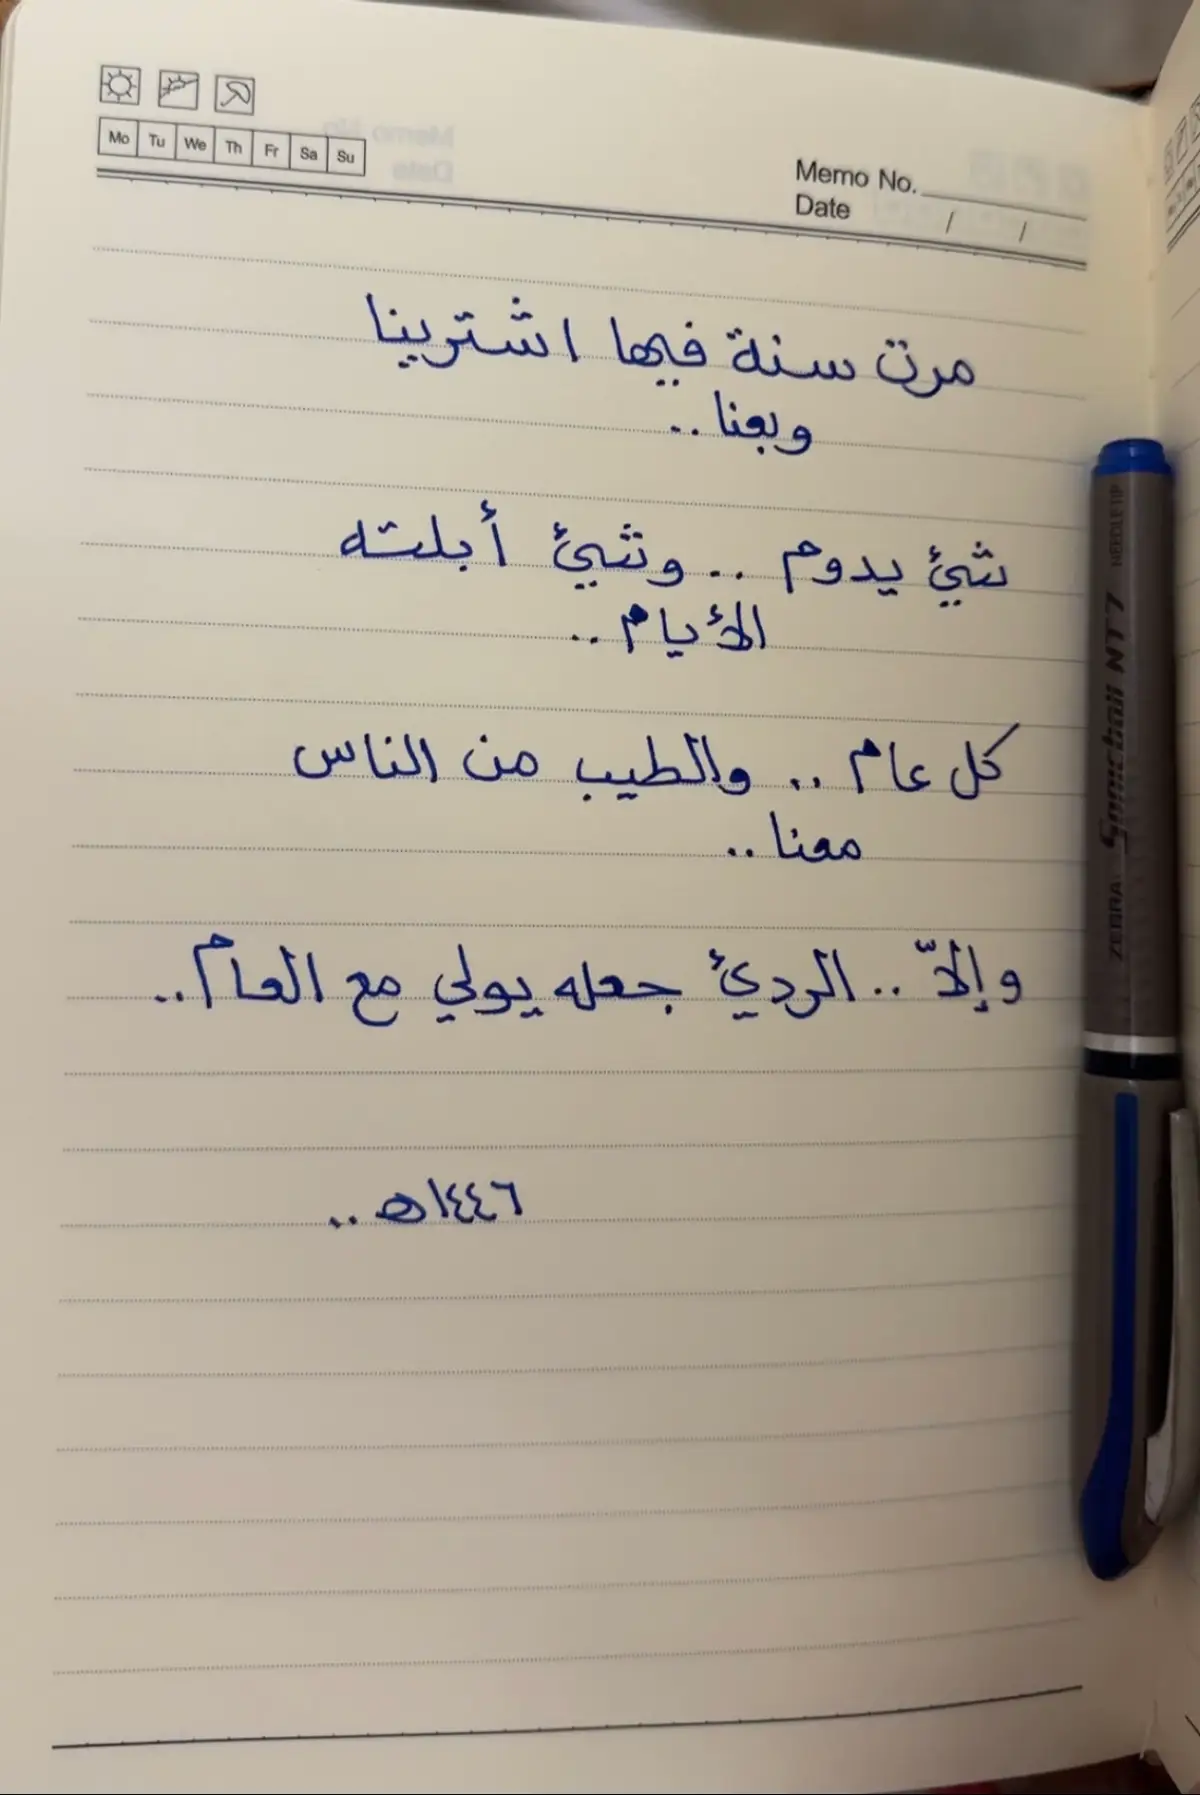 Mo Tu We Th Fr Sa Su
Memo No.
Date / /
مرت سنة فيها اشترينا
وبعنا ..
شيئ يدوم .. وشيئ أبلته
الأيام ..
كل عام .. والطيب من الناس
معنا ..
وإلاّ .. الرديئ جعله يولي مع العام ..
١٤٤٦هـ ..
ZEBRA Sonichaii NT7 NEEDLE TIP